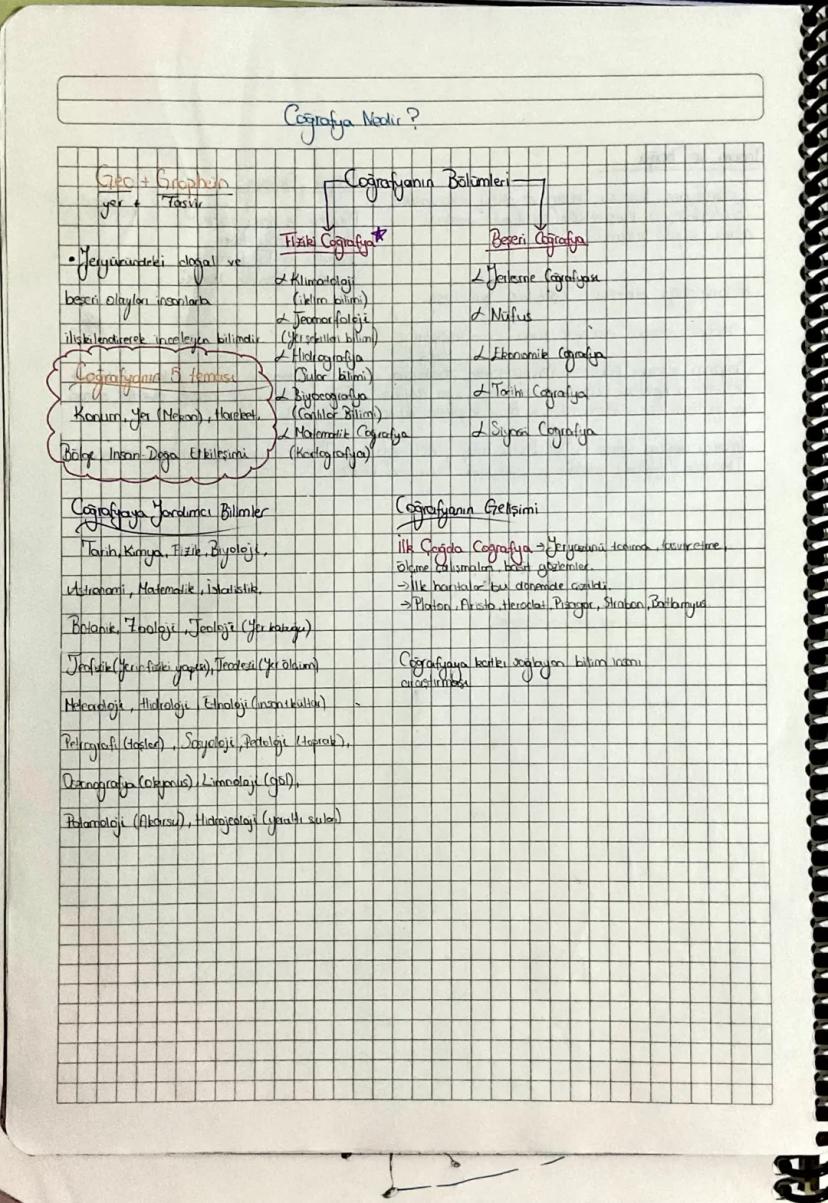 Coğrafya Nedir?
Geo + Graphein
yer + Tasvir
• Yeryüzündeki doğal ve
beşeri olayları insanlarla
ilişkilendirerek inceleyen bilimdir
Coğrafyanın 5 teması
Konum, Yer (Mekan), Hareket,
Bölge, İnsan-Doğa Etkileşimi
Coğrafyanın Bölümleri
Fiziki Coğrafya
Klimatoloji
(iklim bilimi)
Jeomorfoloji
(Yer şekilleri bilimi)
Hidrografya
(Sular bilimi)
Biyocografya
(Canlılar Bilimi)
Matematik Coğrafya
(Kartografya)
Beşeri Coğrafya
Yerleşme Coğrafyası
Nüfus
Ekonomik Coğrafya
Tarihi Coğrafya
Siyasi Coğrafya
Coğrafyaya Yardımcı Bilimler
Tarih, Kimya, Fizik, Biyoloji,
Astronomi, Matematik, İstatistik,
Botanik, Zooloji, Jeoloji (Yer kabuğu)
Jeofizik (Yerin fiziki yapısı), Jeodezi (Yer ölçüm)
Meteoroloji, Hidroloji, Etnoloji (insan kültür)
Petrografi (taşlar), Sosyoloji, Pedoloji (toprak),
Oseonografya (okyanus), Limnoloji (göl),
Potamoloji (Akarsu), Hidrojeoloji (yeraltı suları)
Coğrafyanın Gelişimi
İlk Çağda Coğrafya → Yeryüzünü tanıma, tasvir etme,
ölçme çalışmaları, basit gözlemler.
→ İlk haritalar bu dönemde çizildi.
→ Platon, Aristo, Heredot, Pisagor, Strabon, Batlamyus
Coğrafyaya katkı sağlayan bilim insanı
araştırması